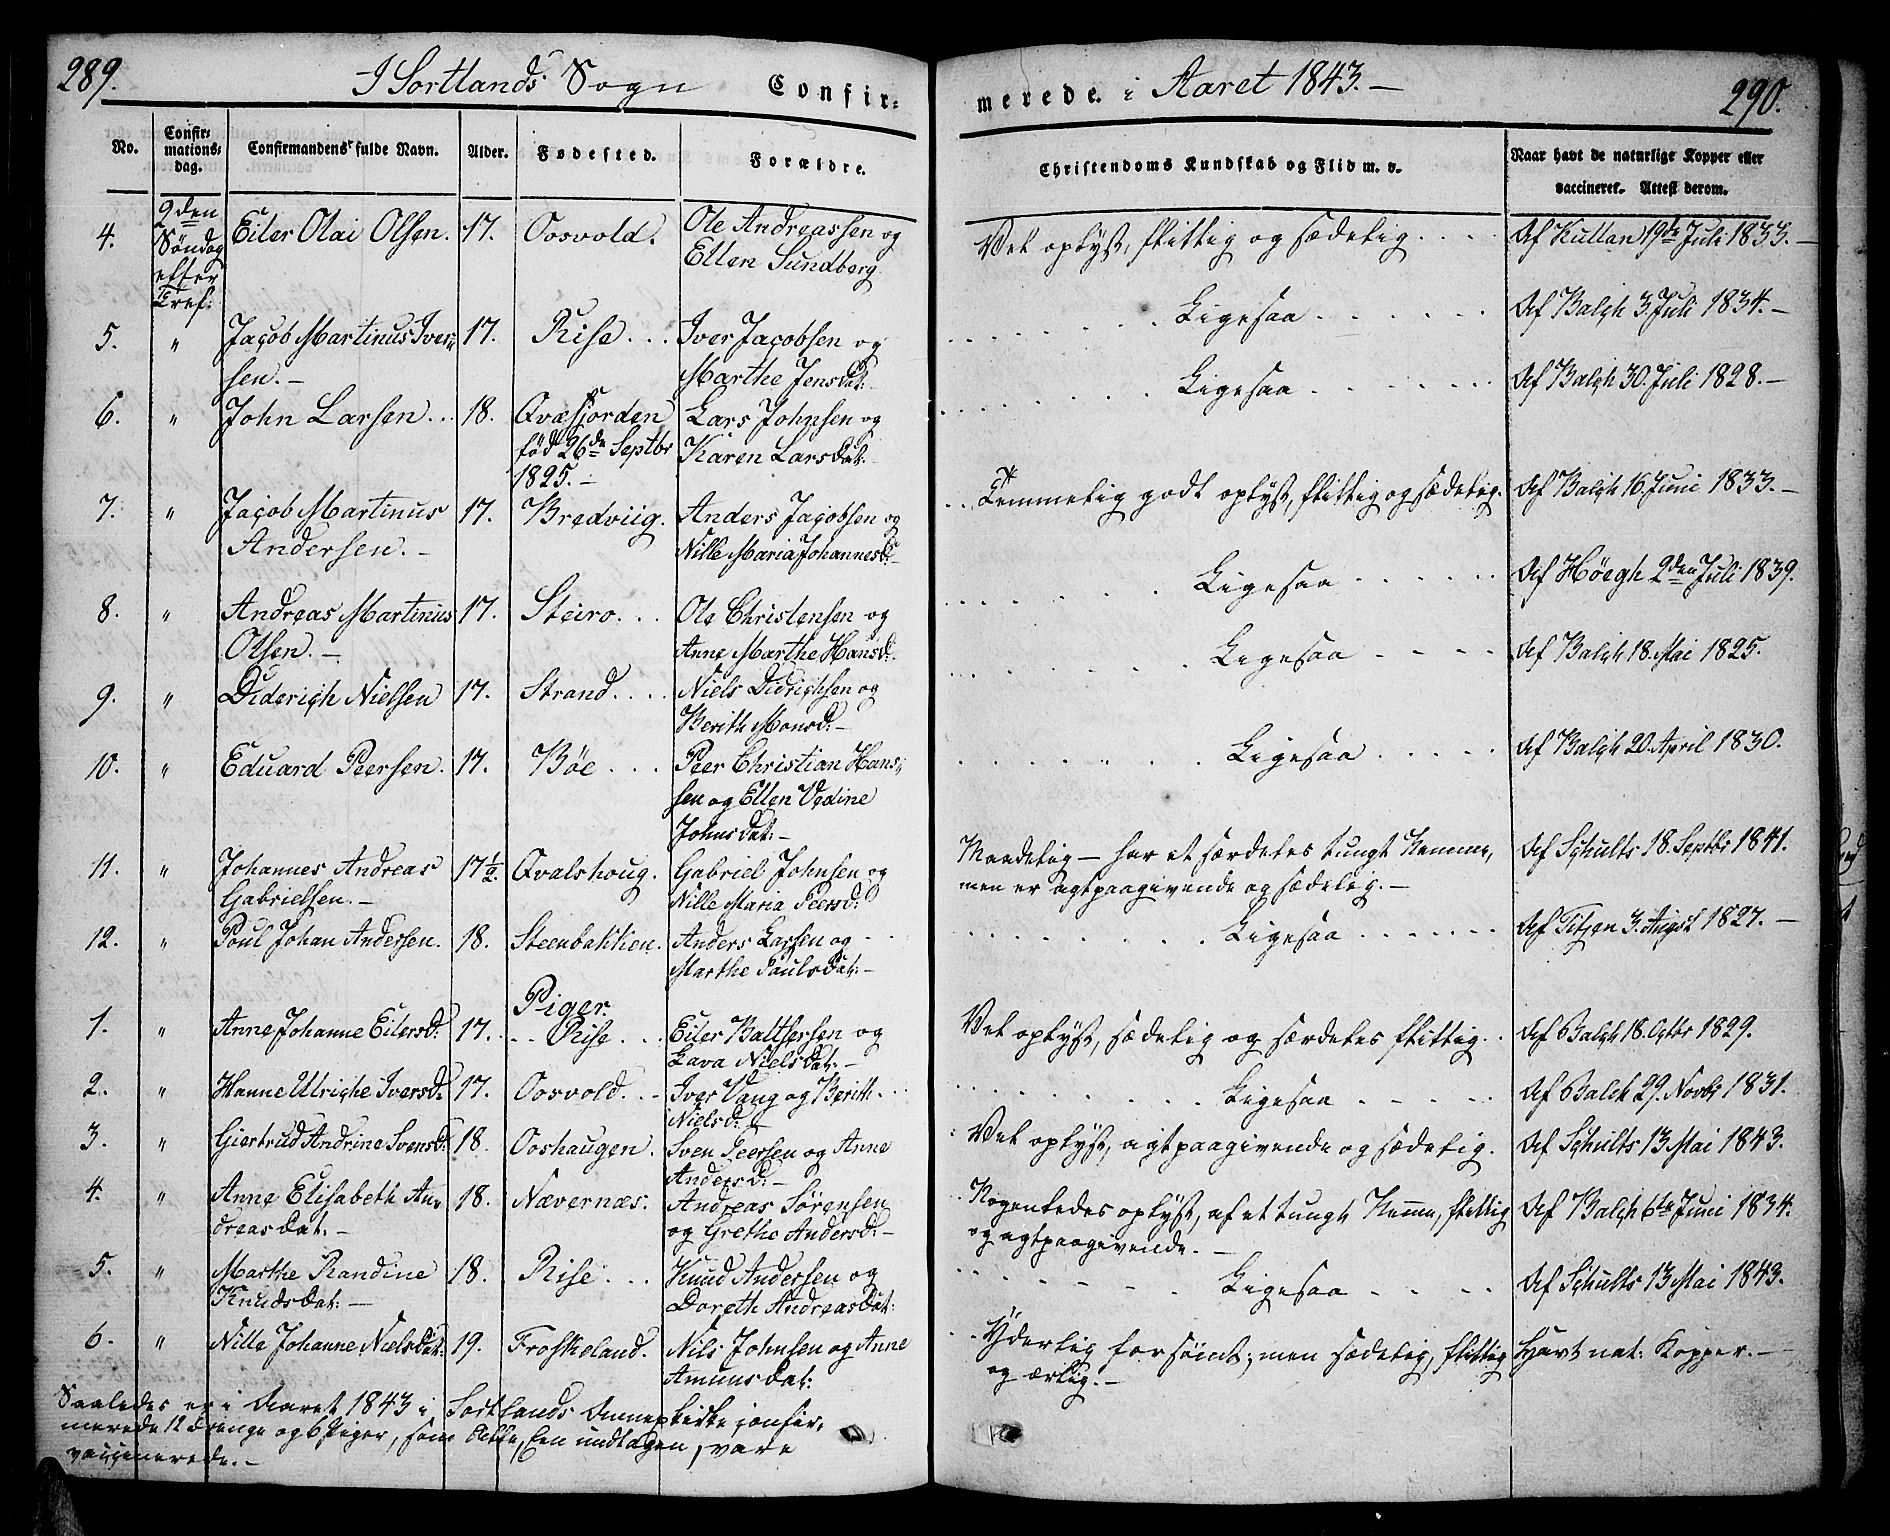 289.
I Sortlands Sogn Confir-
merede. i Aaret 1843.—
290.
No.
Confir-
mations-
dag.
Confirmandens fulde Navn.
Alder.
Fødested.
Forældre.
Christendoms Kundskab og Flid m. v.
Naar havt de naturlige Kopper eller
vaccineret. Attest derom.
4. 2den Eiler Olai Olsen. 17. Oosvold. Ole Andreassen og Vel oplyst, flittig og sædelig.... Af Kullan 19de Juli 1833.—
Søndag Ellen Sundberg.
efter
Tref:
5. " Jacob Martinus Iver= 17. Rise... Iver Jacobsen og Ligesaa...... Af Balch 3. Juli 1834.—
sen.— Marthe Jensdat:
6. " John Larsen... 18. Qvæfjorden Lars Johnsen og Ligesaa...... Af Balch 30. Juli 1828.—
fød 26de Septbr Karen Larsdat:
1825.—
7. " Jacob Martinus 17. Bredviig. Anders Jacobsen og Temmelig godt oplyst, flittig og sædelig. Af Balch 16. Juni 1833.—
Andersen.— Nille Maria Johannesd:—
8. " Andreas Martinus 17. Steiro... Ole Christensen og Ligesaa...... Af Høegh 2den Juli 1839.
Olsen.— Anne Marthe Hansd:
9. " Diderich Nielsen 17. Strand.... Niels Didrichsen og Ligesaa.... Af Balch 18. Mai 1825.
Berith Monsd:—
10. " Eduard Peersen. 17. Bøe... Peer Christian Hans= Ligesaa.... Af Balch 20. April 1830.
sen og Ellen Vedine
Johnsdat:—
11. " Johannes Andreas 17½. Qvalshoug. Gabriel Johnsen og Maadelig—har et særdeles tungt Nemme, Af Schults 18. Septbr 1841.
Gabrielsen.— Nille Maria Peersd: men er agtpaagivende og sædelig.—
12. " Poul Johan Andersen. 18. Steenbakken. Anders Larsen og Ligesaa....... Af Titjen 3. Augst 1827.—
Marthe Paulsdat:—
Piger.
1. " Anne Johanne Eilersd: 17. Rise... Eiler Baltsersen og Vel oplyst, sædelig og særdeles flittig.. Af Balch 18. Octbr 1829.
Lava Nielsdat:—
2. " Hanne Ulriche Iversd: 17. Oosvold... Iver Vang og Berith Ligesaa..... Af Balch 29. Novbr 1831.
Nielsd:—
3. " Giertrud Andrine Svensd: 18. Ooshaugen. Sven Peersen og Anne Vel oplyst, agtpaagivende og sædelig. Af Schults 13 Mai 1843.
Andersd:—
4. " Anne Elisabeth An= 18. Nævernæs. Andreas Sørensen Nogenledes oplyst, af et tungt Nemme, flittig Af Balch 6te Juni 1834.
dreasdat:— og Grethe Andersd:— og agtpaagivende.—
5. " Marthe Randine 18. Rise... Knud Andersen og Ligesaa..... Af Schults 13 Mai 1843.
Knudsdat:— Doreth Andreasdat:
6. " Nille Johanne Nielsdat: 19. Froskeland. Nils Johnsen og Anne Yderlig forsømt; men sædelig, flittig Havt nat: Kopper.—
Amunsdat: og ærlig.—
Saaledes er i Aaret 1843 i Sortlands Annexkirke confir=
merede 12 Drenge og 6 Piger, som alle, Een undtagen, vare
vaccinerede.—